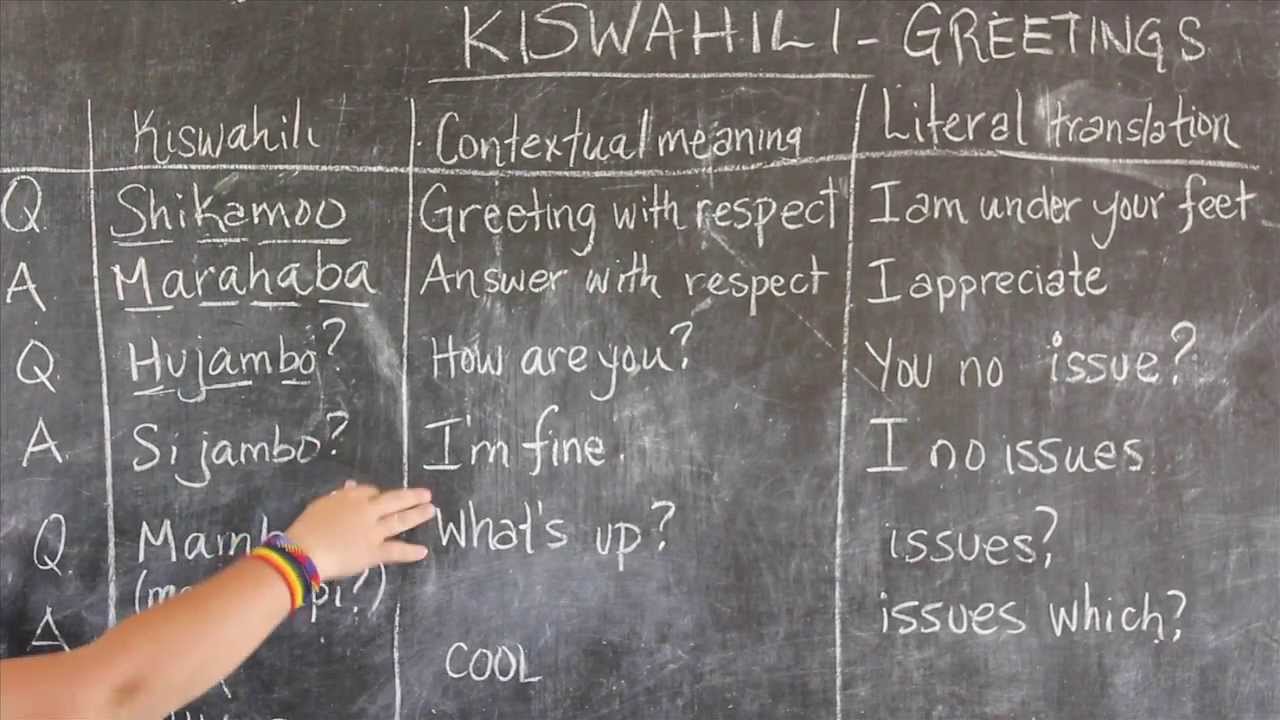 KISWAHILI - GREETINGS
Kiswahili Contextual meaning Literal translation
Q Shikamoo Greeting with respect I am under your feet
A Marahaba Answer with respect I appreciate
Q Hujambo? How are you? You no issue?
A Sijambo? I'm fine I no issues
Q What's up? issues?
issues which?
A COOL